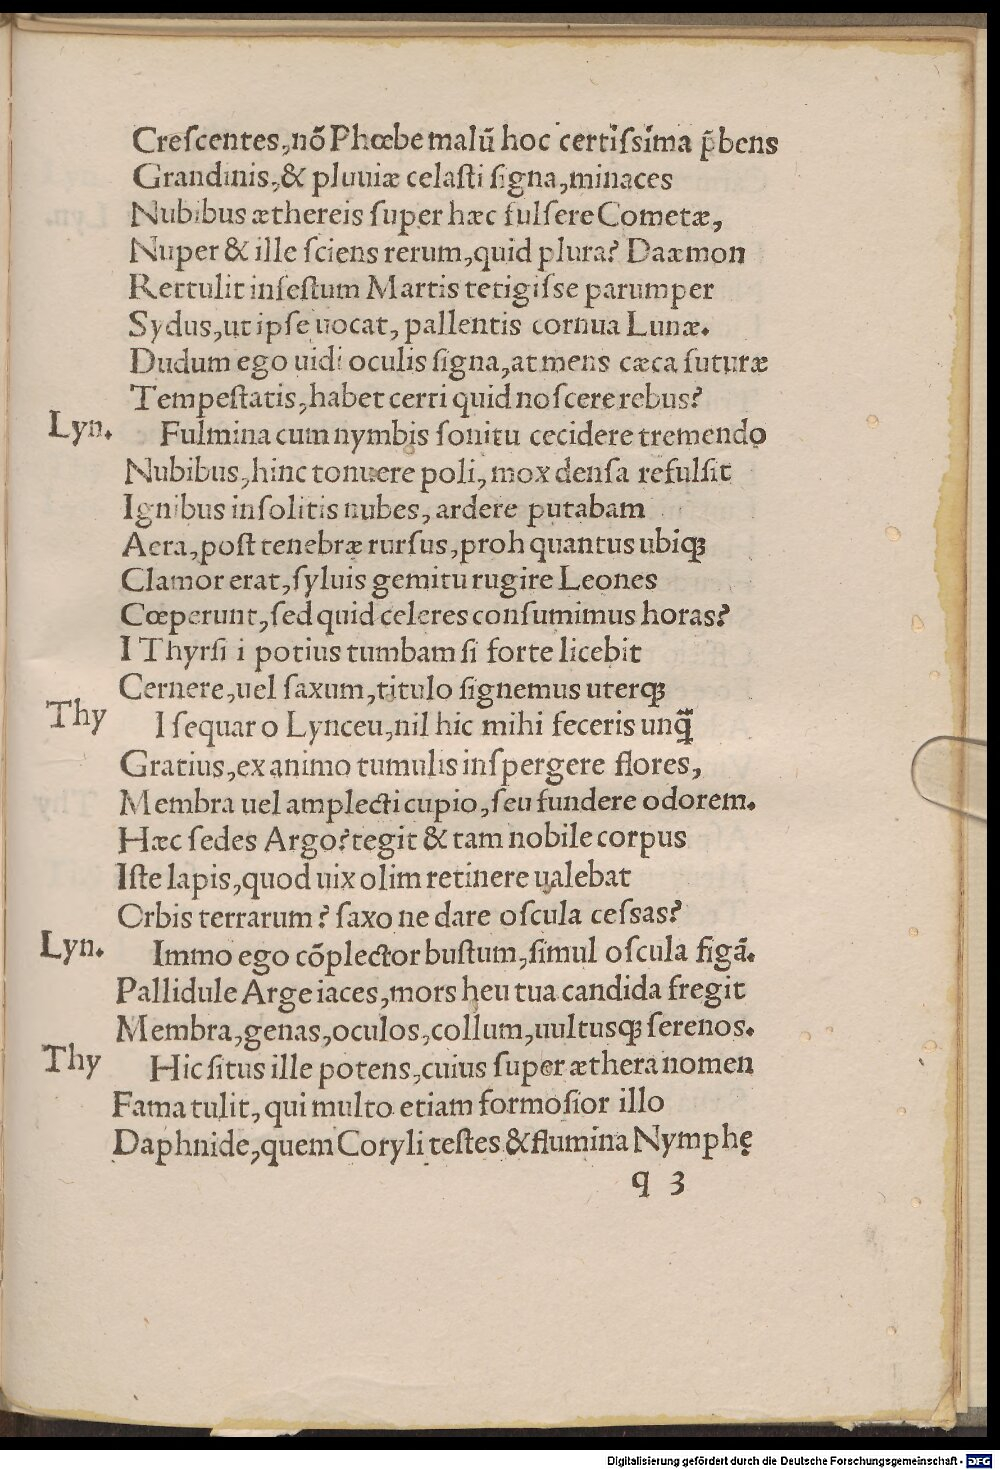 Creſcentes,nõ Phœbe malũ hoc certiſsima p̃bens
Grandinis,& pluuiæ celaſti ſigna,minaces
Nubibus æthereis ſuper hæc fulſere Cometæ,
Nuper & ille ſciens rerum,quid plura? Daæmon
Rettulit infeſtum Martis tetigiſse parumper
Sydus,ut ipſe uocat, pallentis cornua Lunæ.
Dudum ego uidi oculis ſigna,at mens cæca futuræ
Tempeſtatis,habet cerri quid noſcere rebus?
Lyn. Fulmina cum nymbis ſonitu cecidere tremendo
Nubibus,hinc tonuere poli, mox denſa refulſit
Ignibus inſolitis nubes, ardere putabam
Aera,poſt tenebræ rurſus,proh quantus ubiqꝫ
Clamor erat,ſyluis gemitu rugire Leones
Cœperunt,ſed quid celeres conſumimus horas?
I Thyrſi i potius tumbam ſi forte licebit
Cernere,uel ſaxum,titulo ſignemus uterqꝫ
Thy I ſequar o Lynceu,nil hic mihi feceris unq̃
Gratius,ex animo tumulis inſpergere flores,
Membra uel amplecti cupio,ſeu fundere odorem.
Hæc ſedes Argo?tegit & tam nobile corpus
Iſte lapis,quod uix olim retinere ualebat
Orbis terrarum? ſaxo ne dare oſcula ceſsas?
Lyn. Immo ego cõplector buſtum,ſimul oſcula figã.
Pallidule Arge iaces,mors heu tua candida fregit
Membra,genas,oculos,collum,uultusqꝫ ſerenos.
Thy Hic ſitus ille potens,cuius ſuper æthera nomen
Fama tulit, qui multo etiam formoſior illo
Daphnide,quem Coryli teſtes & flumina Nymphę
q 3
Digitalisierung gefördert durch die Deutsche Forschungsgemeinschaft - DFG